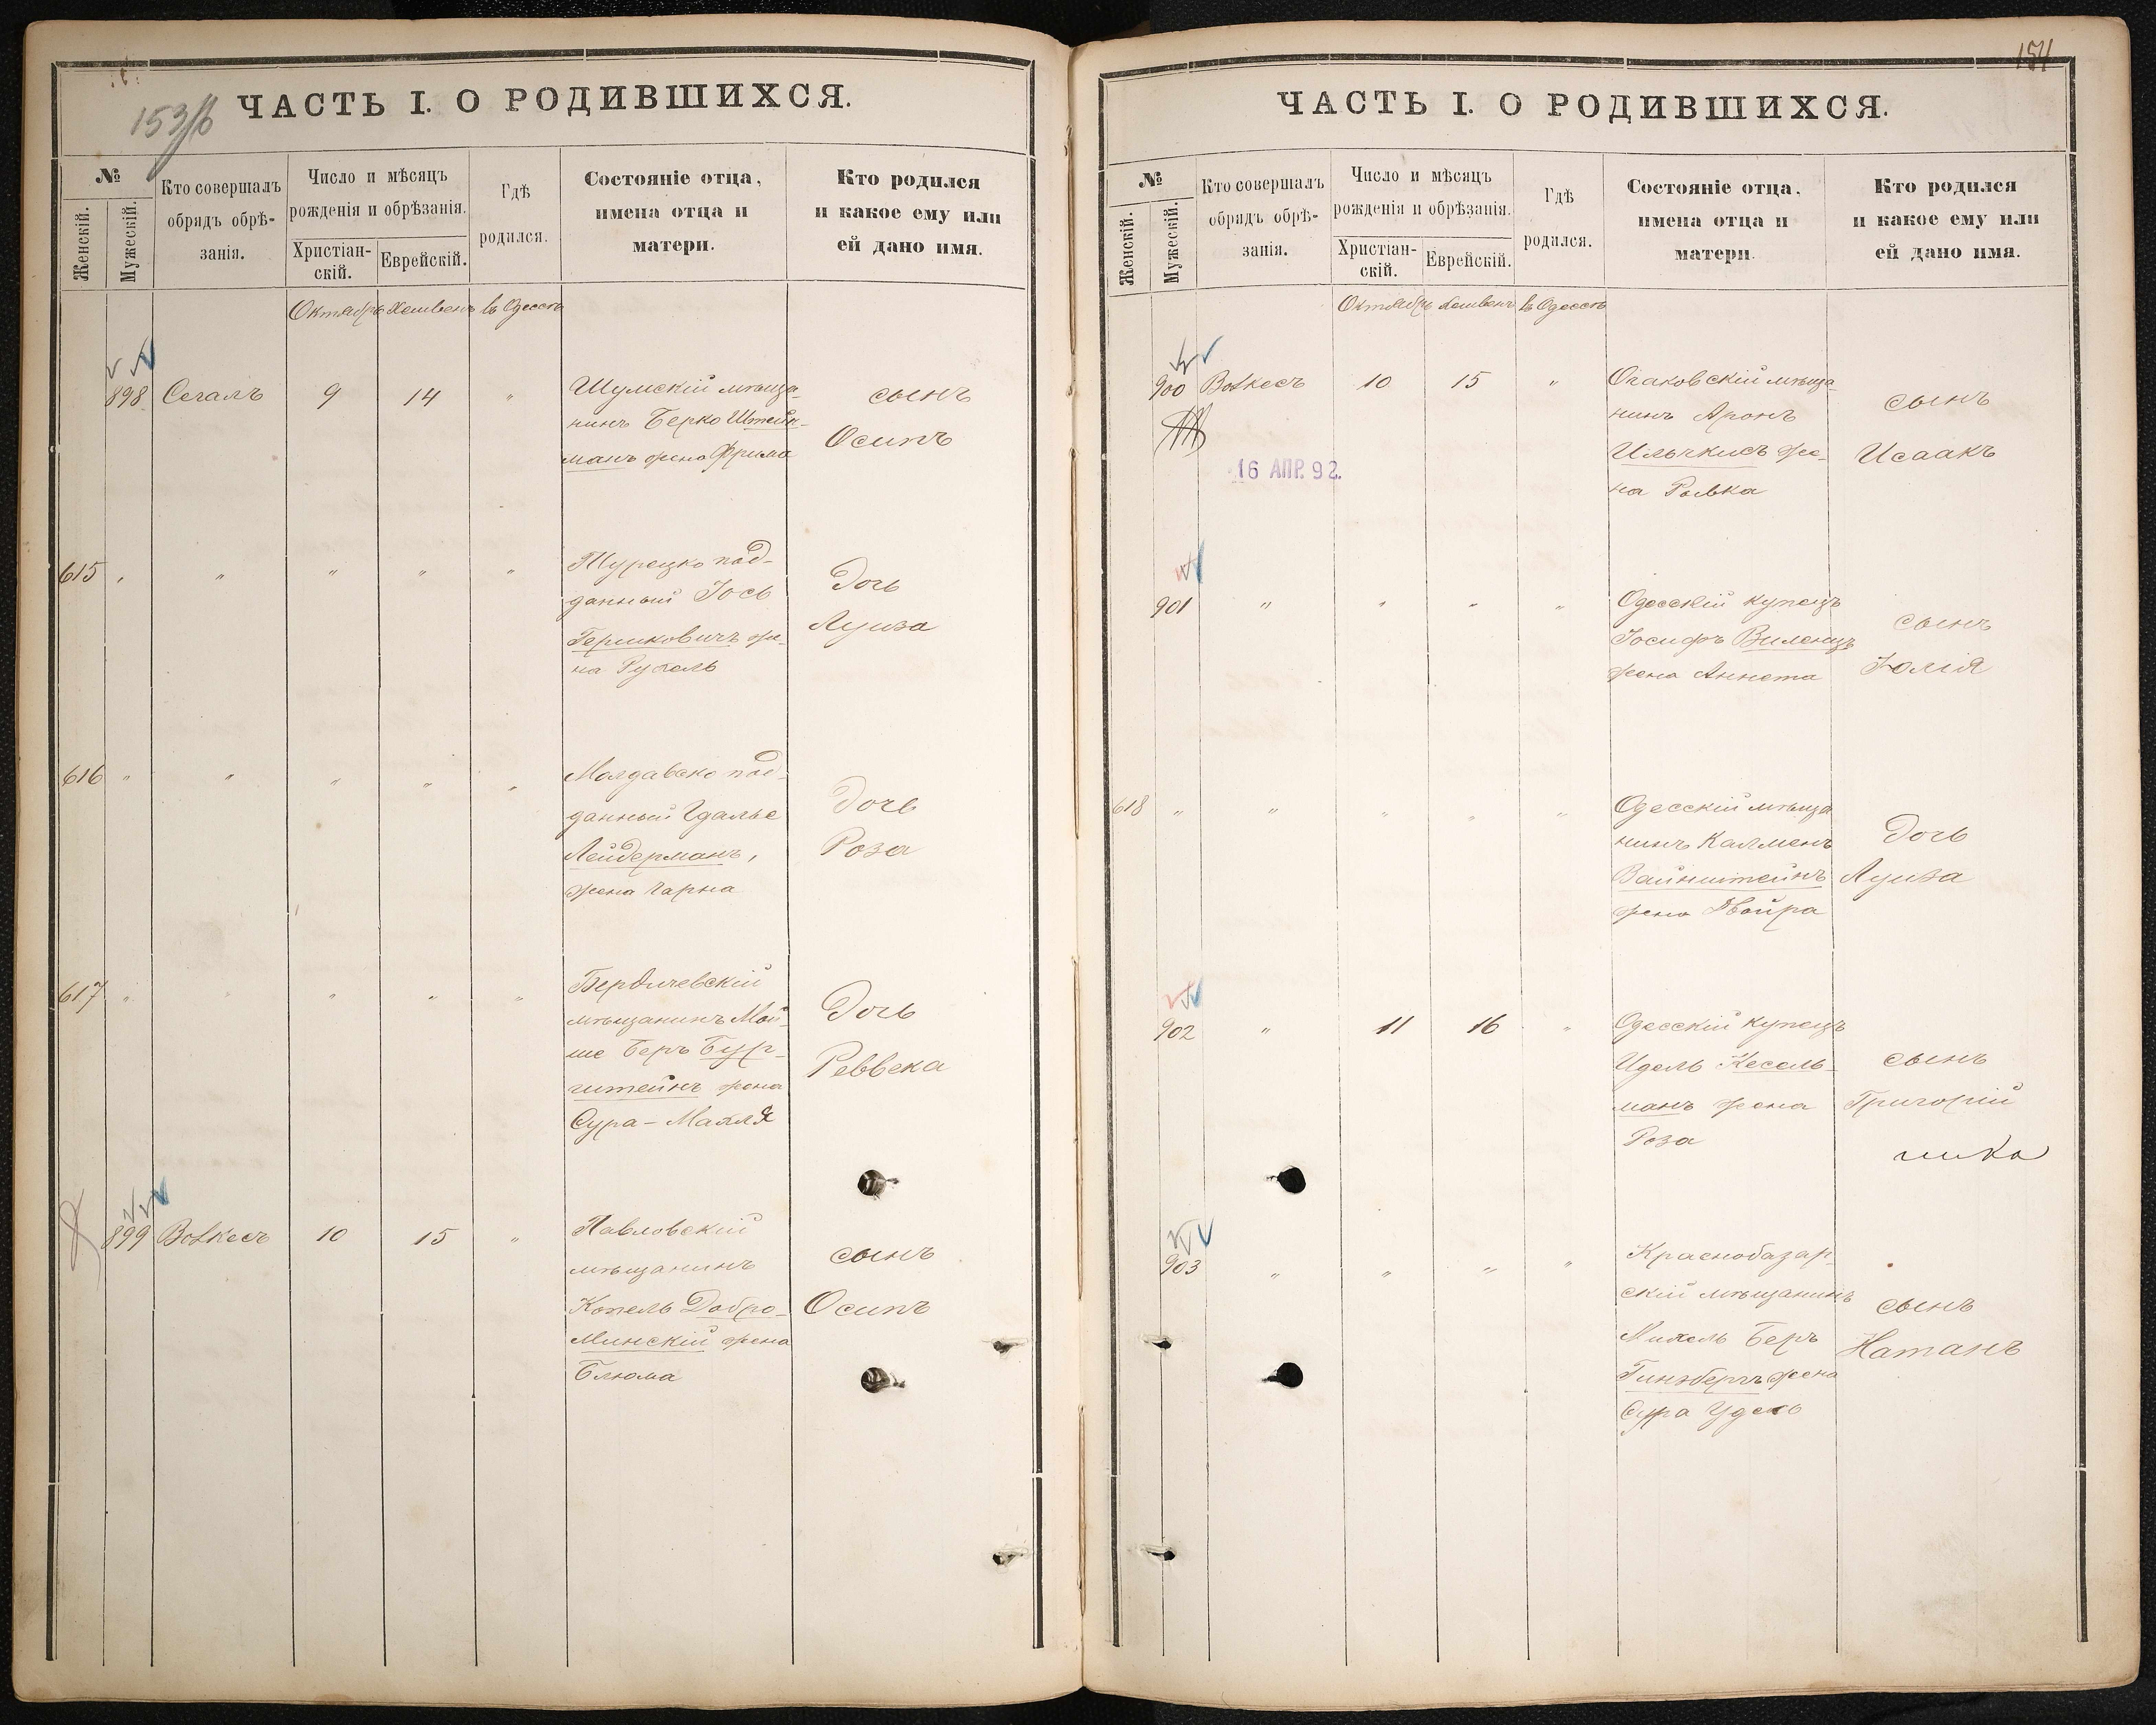 153/б
ЧАСТЬ I. О РОДИВШИХСЯ.
№
Женскій.
Мужескій.
Кто совершалъ
обрядъ обрѣ-
занія.
Число и мѣсяцъ
рожденія и обрѣзанія.
Христіан-
скій.
Еврейскій.
Гдѣ
родился.
Состояніе отца,
имена отца и
матери.
Кто родился
и какое ему или
ей дано имя.
Октябрь Хешвенъ въ Одессѣ
898 Сегалъ 9 14 "
Шумскій мѣща-
нинъ Берко Штейн-
манъ жена Фрима
сынъ
Осипъ
615 " " " " "
Турецко под-
данный Іось
Гершковичъ же-
на Рухель
Дочь
Луиза
616 " " " " "
Молдавско под-
данный Гдалье
Лейдерманъ,
жена Чарна
Дочь
Роза
617 " " " " "
Бердичевскій
мѣщанинъ Мой-
ше Беръ Бург-
штейнъ жена
Сура-Махля
Дочь
Реввека
899 Волкесъ 10 15 "
Павловскій
мѣщанинъ
Копель Добро-
минскій жена
Блюма
сынъ
Осипъ
154
ЧАСТЬ I. О РОДИВШИХСЯ.
№
Женскій.
Мужескій.
Кто совершалъ
обрядъ обрѣ-
занія.
Число и мѣсяцъ
рожденія и обрѣзанія.
Христіан-
скій.
Еврейскій.
Гдѣ
родился.
Состояніе отца,
имена отца и
матери.
Кто родился
и какое ему или
ей дано имя.
Октябрь Хешвенъ въ Одессѣ
900 Волкесъ 10 15 "
16 АПР. 92.
Очаковскій мѣща-
нинъ Аронъ
Ильчкисъ же-
на Рывка
сынъ
Исаакъ
901 " " " "
Одесскій купецъ
Іосифъ Виленцъ
жена Аннета
сынъ
Юлій
618 " " " " "
Одесскій мѣща
нинъ Калменъ
Вайнштейнъ
жена Двойра
Дочь
Луиза
902 " 11 16 "
Одесскій купецъ
Идель Кесель-
манъ жена
Роза
сынъ
Григорій
903 " " " "
Краснобазар-
скій мѣщанинъ
Михель Беръ
Гинзбергъ жена
Сура Удель
сынъ
Натанъ